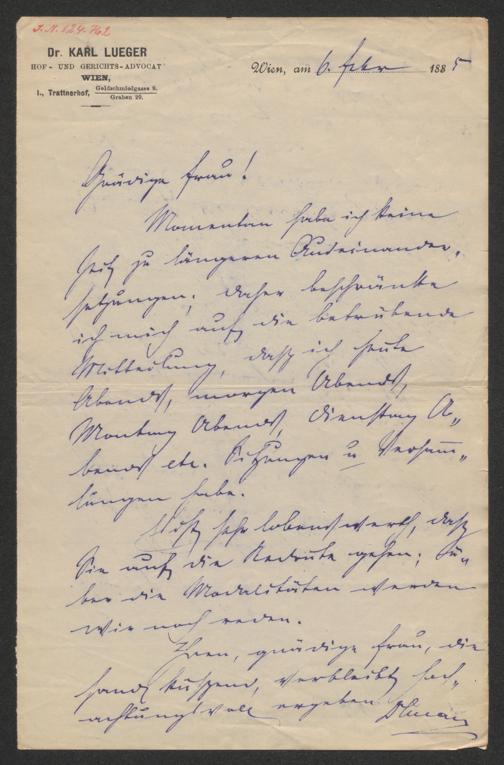 J.N. 124.762
Dr. KARL LUEGER
HOF- UND GERICHTS-ADVOCAT
WIEN,
I., Trattnerhof, Goldschmiedgasse 9.
Graben 29.
Wien, am 6. Febr 1885
Gnädige Frau!
Momentan habe ich keine
Zeit zu längeren Auseinander-
setzungen; daher beschränke
ich mich auf die betrübende
Mittheilung, daß ich heute
Abends, morgen Abends,
Montag Abends, Dienstag A-
bends etc. Sitzungen u Versamm-
lungen habe.
ist sehr lobenswerth, daß
Sie auf die Redoute gehen; ü-
ber die Modalitäten werden
wir noch reden.
Ihnen, gnädige Frau, die
Hand küssend, verbleibt hoch-
achtungsvoll ergeben